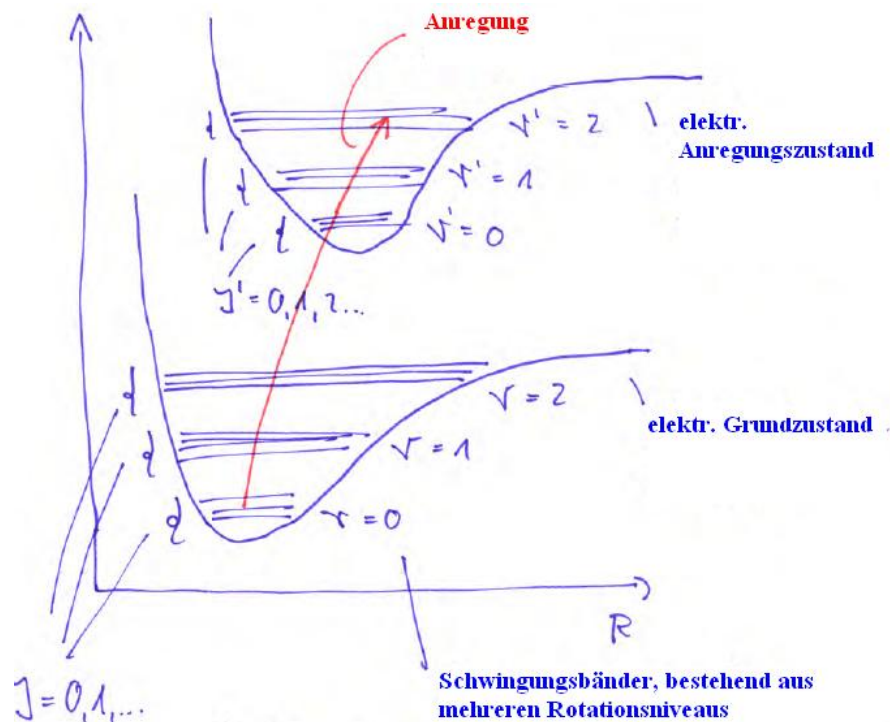 Anregung
v' = 2
elektr.
Anregungszustand
v' = 1
v' = 0
J' = 0, 1, 2...
v = 2
elektr. Grundzustand
v = 1
v = 0
R
J = 0, 1, ...
Schwingungsbänder, bestehend aus
mehreren Rotationsniveaus